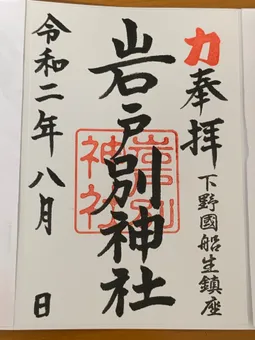 力
奉拝
下野國船生鎮座
岩戸別神社
岩戸別神社
令和二年八月 日